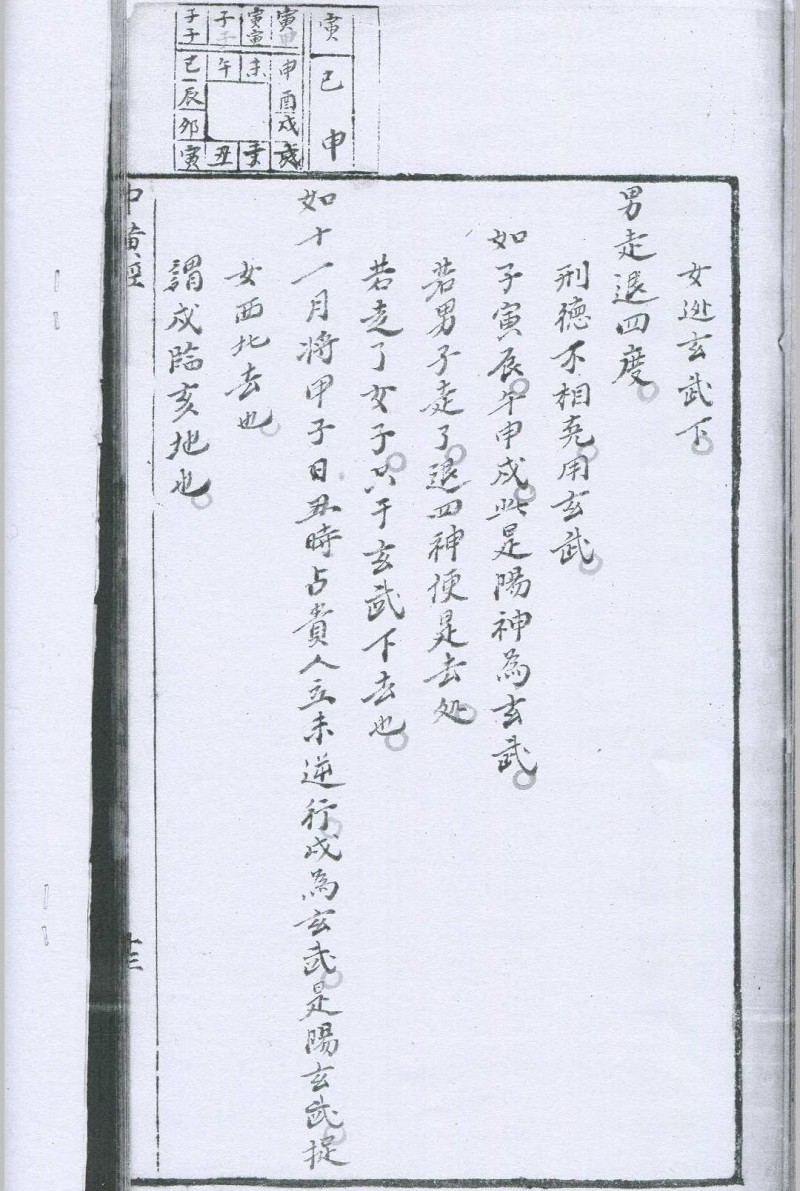 寅
巳
申
子 子 寅 寅
子 子 寅
巳 午 未 申
辰 酉
卯 戌
寅 丑 子 亥
女逃玄武下
男走退四度
刑德不相克用玄武
如子寅辰午申戌此是陽神為玄武
若男子走了退四神便是去処
若走了女子只于玄武下去也
如十一月将甲子日丑時占貴人立未逆行戌為玄武是陽玄武捉
女西北去也
謂戌臨亥地也
中黄經
十三